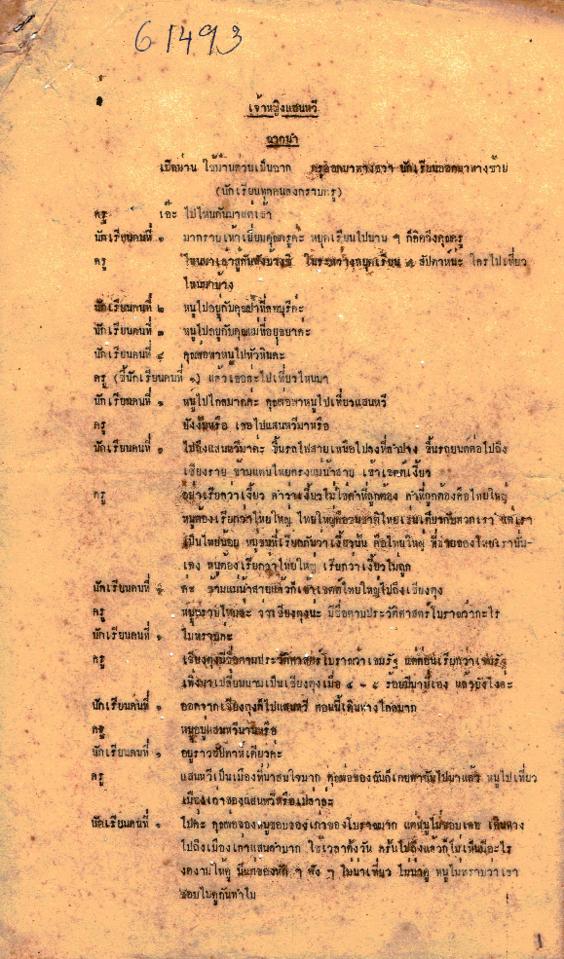 61493
เจ้าหญิงแสนหวี
ฉากนำ
เปิดม่าน ใช้ม่านส่วนเป็นฉาก ครูออกมาทางขวา นักเรียนออกมาทางซ้าย
(นักเรียนทุกคนลงกราบครู)
ครู เอ๊ะ ไปไหนกันมาแต่เช้า
นักเรียนคนที่ ๑ มากราบเท้าเยี่ยมคุณครูค่ะ หยุดเรียนไปนาน ๆ ก็คิดถึงคุณครู
ครู ไหนมาเล่าสู่กันฟังบ้างซิ ในระหว่างหยุดเรียน ๓ สัปดาห์น่ะ ใครไปเที่ยว
ไหนมาบ้าง
นักเรียนคนที่ ๒ หนูไปอยู่กับคุณป้าที่ลพบุรีค่ะ
นักเรียนคนที่ ๓ หนูไปอยู่กับคุณแม่ที่อยุธยาค่ะ
นักเรียนคนที่ ๔ คุณพ่อพาหนูไปหัวหินค่ะ
ครู (ชี้นักเรียนคนที่ ๑) แล้วเธอล่ะไปเที่ยวไหนมา
นักเรียนคนที่ ๑ หนูไปไกลมากค่ะ คุณพ่อพาหนูไปเที่ยวแสนหวี
ครู ยังงั้นหรือ เธอไปแสนหวีมาหรือ
นักเรียนคนที่ ๑ ไปถึงแสนหวีมาค่ะ ขึ้นรถไฟสายเหนือไปลงที่ลำปาง ขึ้นรถยนต์ต่อไปถึง
เชียงราย ข้ามแดนไทยตรงแม่น้ำสาย เข้าเขตต์เงี้ยว
ครู อย่าเรียกว่าเงี้ยว คำว่าเงี้ยวไม่ใช่คำที่ถูกต้อง คำที่ถูกต้องคือไทยใหญ่
หนูต้องเรียกว่าไทยใหญ่ ไทยใหญ่คือชนชาติไทยเช่นเดียวกับพวกเรา แต่เรา
เป็นไทยน้อย หมู่ชนที่เรียกกันว่าเงี้ยวนั้น คือไทยใหญ่ พี่ชายของไทยเรานั้น-
เอง หนูต้องเรียกว่าไทยใหญ่ เรียกว่าเงี้ยวไม่ถูก
นักเรียนคนที่ ๑ ค่ะ ข้ามแม่น้ำสายแล้วก็เข้าเขตต์ไทยใหญ่ไปถึงเชียงตุง
ครู หนูทราบไหมล่ะ ว่าเชียงตุงน่ะ มีชื่อตามประวัติศาสตร์โบราณว่ากะไร
นักเรียนคนที่ ๑ ไม่ทราบค่ะ
ครู เชียงตุงมีชื่อตามประวัติศาสตร์โบราณว่าเขมรัฐ แต่ก่อนเรียกว่าเขมรัฐ
เพิ่งมาเปลี่ยนนามเป็นเชียงตุงเมื่อ ๔ - ๕ ร้อยปีมานี้เอง แล้วยังไงคะ
นักเรียนคนที่ ๑ ออกจากเชียงตุงก็ไปแสนหวี ตอนนี้เดินทางไกลมาก
ครู หนูอยู่แสนหวีนานหรือ
นักเรียนคนที่ ๑ อยู่ราวสัปดาห์เดียวค่ะ
ครู แสนหวีเป็นเมืองที่น่าสนใจมาก คุณพ่อของฉันก็เคยพาฉันไปมาแล้ว หนูไปเที่ยว
เมืองเก่าของแสนหวีหรือเปล่าล่ะ
นักเรียนคนที่ ๑ ไปค่ะ คุณพ่อของหนูชอบของเก่าของโบราณมาก แต่หนูไม่ชอบเลย เดินทาง
ไปถึงเมืองเก่าแสนลำบาก ใช้เวลาตั้งวัน ครั้นไปถึงแล้วก็ไม่เห็นมีอะไร
งดงามให้ดู มีแต่ของหัก ๆ พัง ๆ ไม่น่าเที่ยว ไม่น่าดู หนูไม่ทราบว่าเขา
ชอบไปดูกันทำไม
1